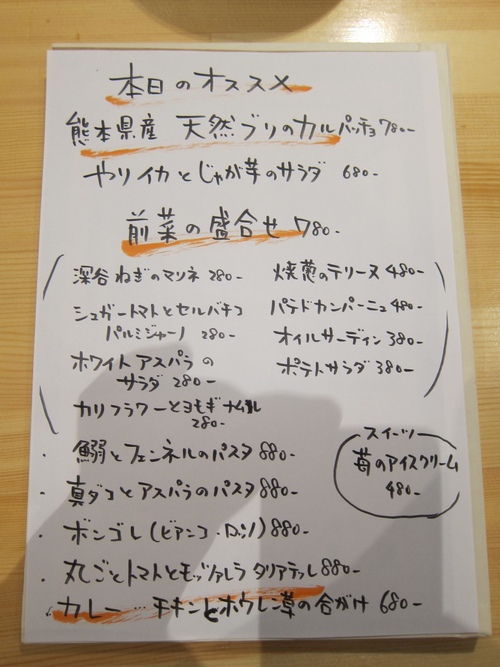 本日のオススメ
熊本県産 天然ブリのカルパッチョ 780-
ヤリイカとじゃが芋のサラダ 680-
前菜の盛合せ 780-
深谷ねぎのマリネ 280-
シュガートマトとセルバチコ
パルミジャーノ 280-
ホワイトアスパラの
サラダ 280-
カリフラワーとヨモギナムル
280-
焼葱のテリーヌ 480-
パテドカンパーニュ 480-
オイルサーディン 380-
ポテトサラダ 380-
・鰯とフェンネルのパスタ 880-
・真ダコとアスパラのパスタ 880-
・ボンゴレ(ビアンコ・ロッソ) 880-
・丸ごとトマトとモッツァレラ タリアテッレ 880-
スイーツ
苺のアイスクリーム
480-
・カレー…チキンとホウレン草の合がけ 680-